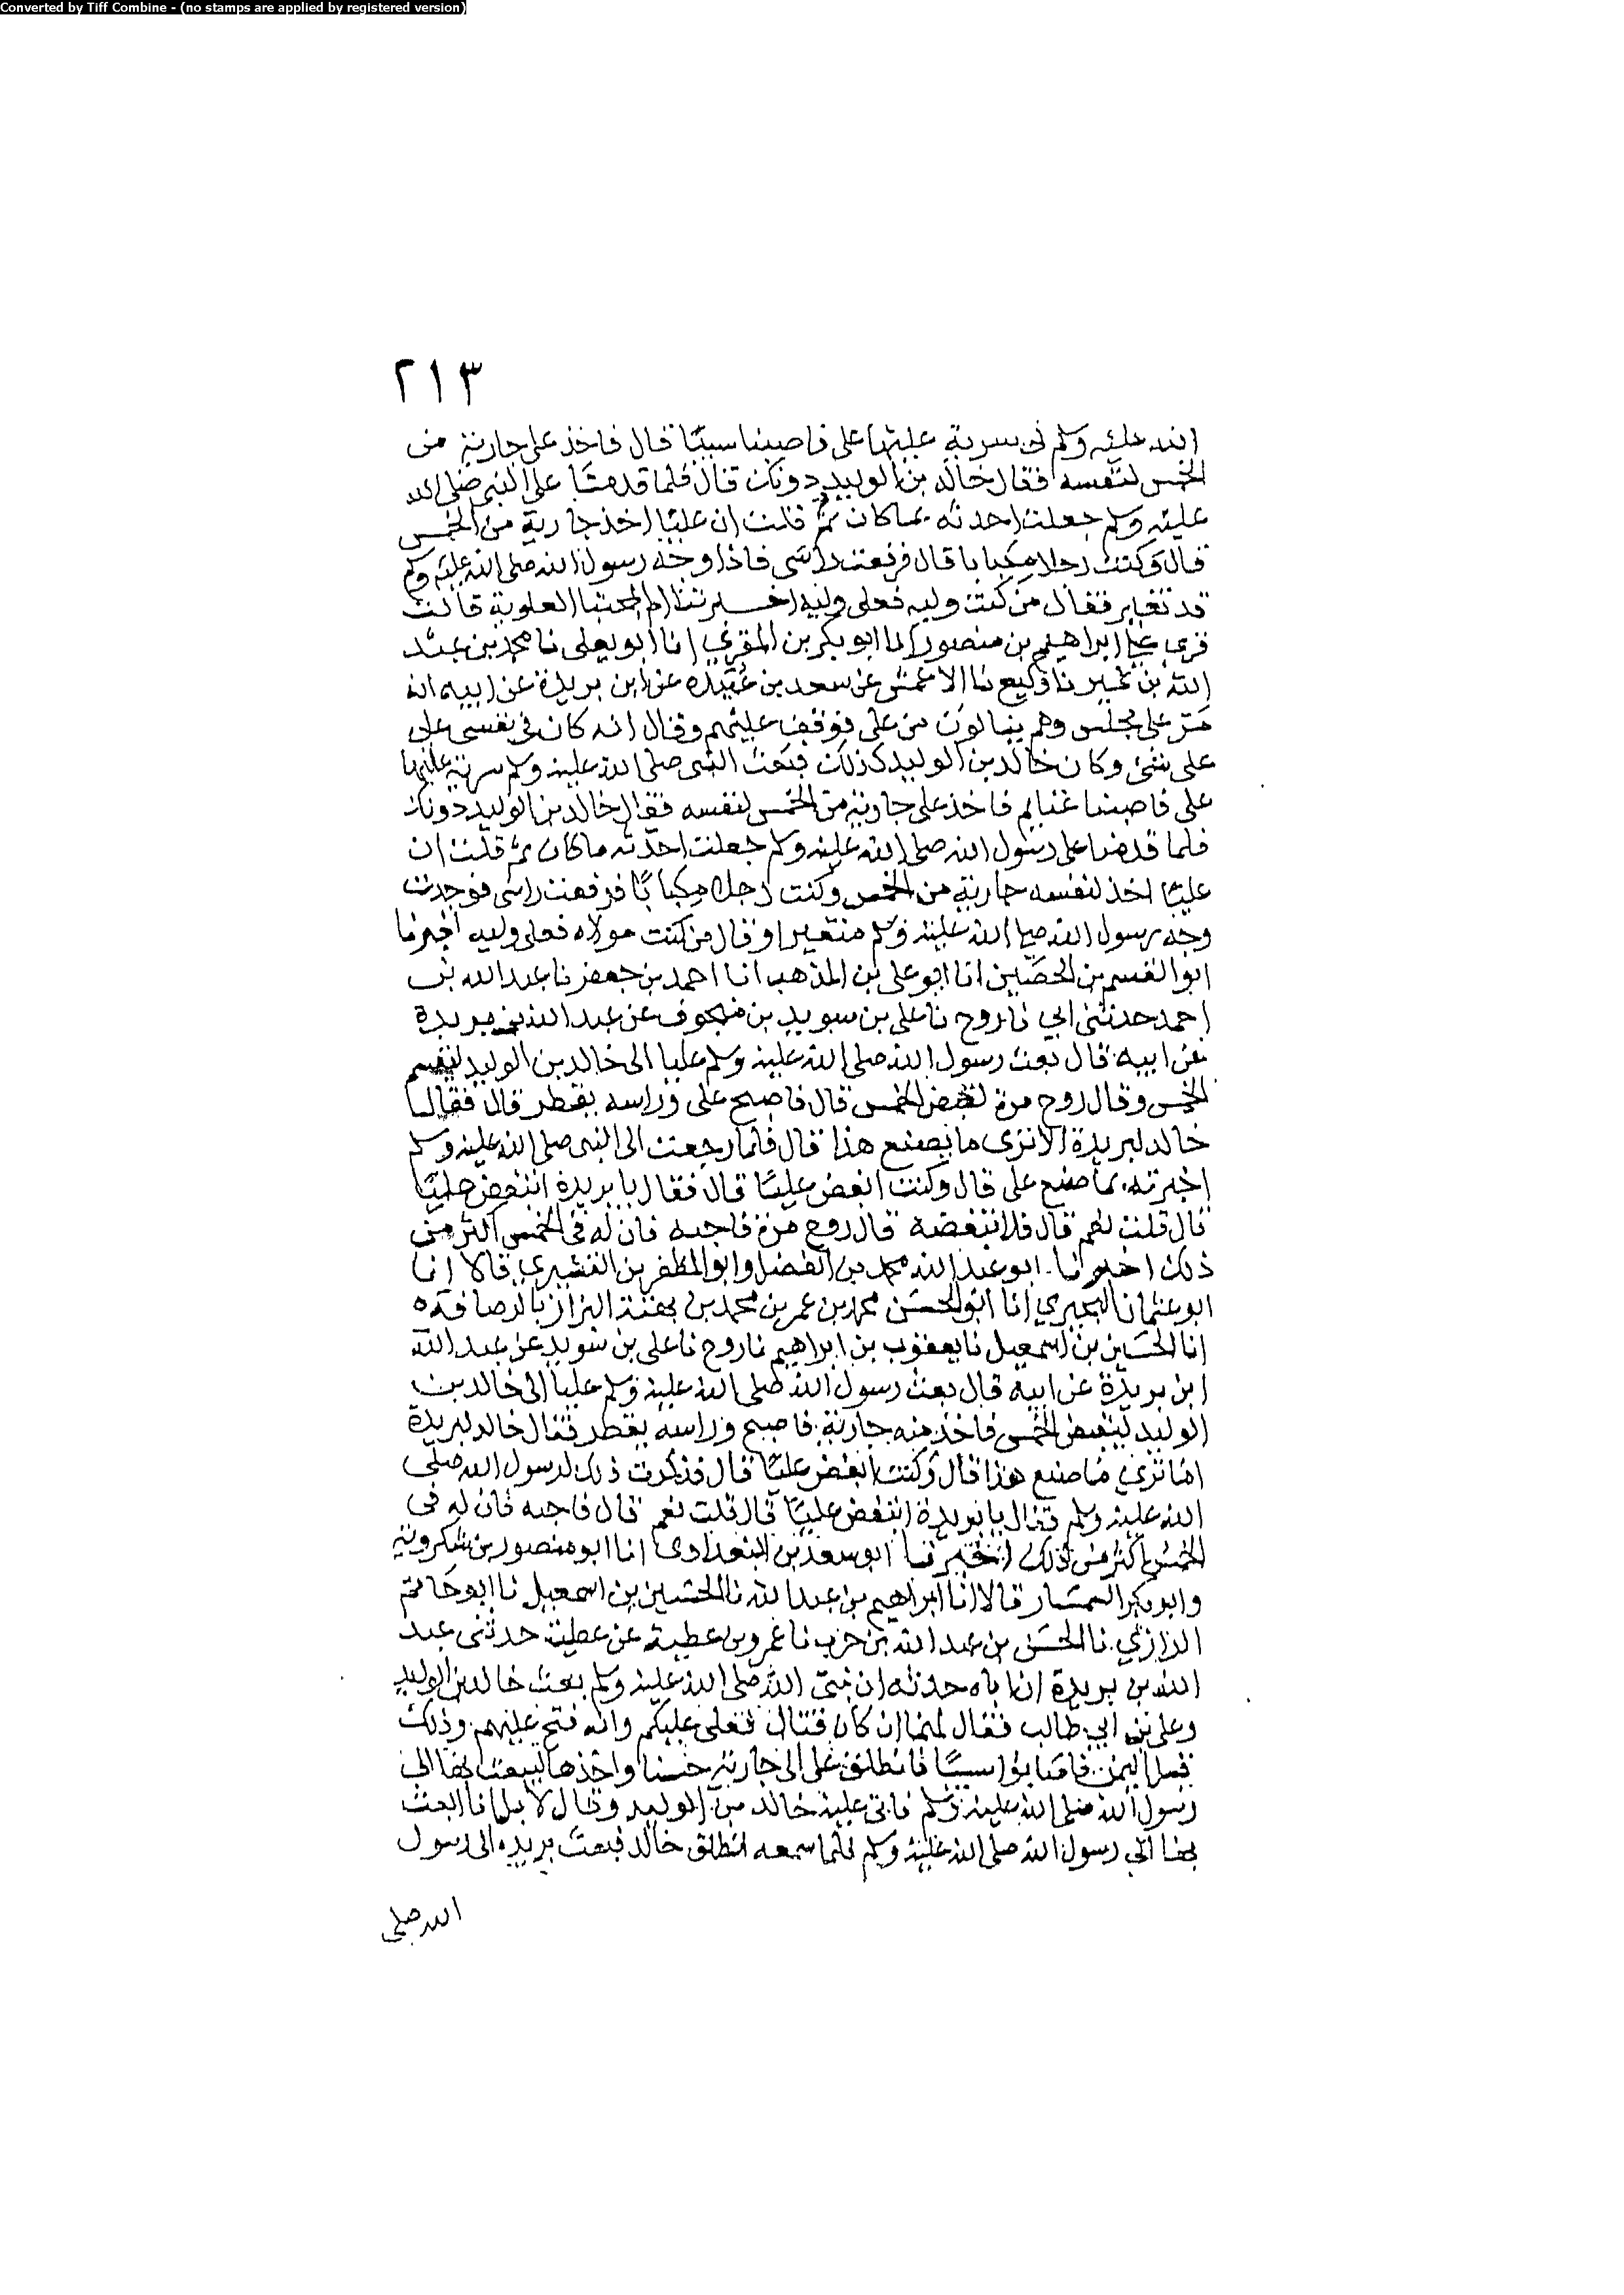 Converted by Tiff Combine - (no stamps are applied by registered version)
٢١٣
الله عليه وسلم في سرية علينا على فاصبنا سبيا قال فاخذ على جارية من
الخمس لنفسه فقال خالد بن الوليد دونك قال فلما قدمنا على النبي صلى الله
عليه وسلم جعلت احدثه بما كان ثم قلت ان عليا اخذ جارية من الخمس
قال وكنت رجلا مكبابا قال فرفعت راسي فاذا وجه رسول الله صلى الله عليه وسلم
قد تغير فقال من كنت وليه فعلى وليه اخبرتنا ام المجتبا العلوية قالت
قرى على ابراهيم بن منصور انا ابو بكر بن المقرئ انا ابو يعلى نا محمد بن عبد
الله بن نمير نا وكيع نا الاعمش عن سعد بن عبيدة عن ابن بريدة عن ابيه انه
مر على مجلس وهم ينالون من على فوقف عليهم وقال انه كان في نفسي على
على شئ وكان خالد بن الوليد كذلك فبعث النبي صلى الله عليه وسلم سرية عليها
على فاصبنا غنايم فاخذ على جارية من الخمس لنفسه فقال خالد بن الوليد دونك
فلما قدمنا على رسول الله صلى الله عليه وسلم جعلت احدثه ما كان ثم قلت ان
عليا اخذ لنفسه جارية من الخمس وكنت رجلا مكبابا فرفعت راسي فوجدت
وجه رسول الله صلى الله عليه وسلم متغيرا وقال من كنت مولاه فعلى وليه اخبرنا
ابو القسم بن الحصين انا ابو على بن المذهب انا احمد بن جعفر نا عبد الله بن
احمد حدثني ابي نا روح نا على بن سويد بن منجوف عن عبد الله بن بريدة
عن ابيه قال بعث رسول الله صلى الله عليه وسلم عليا الى خالد بن الوليد ليقسم
الخمس وقال روح مرة لقبض الخمس قال فاصبح على وراسه يقطر قال فقال
خالد لبريدة الا ترى ما يصنع هذا قال فلما رجعت الى النبي صلى الله عليه وسلم
اخبرته بما صنع على قال وكنت ابغض عليا قال فقال يا بريدة اتبغض عليا
قال قلت نعم قال فلا تبغضه قال روح مرة فاحبه فان له في الخمس اكثر من
ذلك اخبرنا ابو عبد الله محمد بن الفضل وابو المظفر بن القشيري قالا انا
ابو عثمان البحيري انا ابو الحسن محمد بن عمر بن محمد بن بهتة البزاز بالرصافة
انا الحسين بن اسمعيل نا يعقوب بن ابراهيم نا روح نا على بن سويد عن عبد الله
ابن بريدة عن ابيه قال بعث رسول الله صلى الله عليه وسلم عليا الى خالد بن
الوليد ليقبض الخمس فاخذ منه جارية فاصبح وراسه يقطر فقال خالد لبريدة
اما ترى ما صنع هذا قال وكنت ابغض عليا قال فذكرت ذلك لرسول الله صلى
الله عليه وسلم فقال يا بريدة اتبغض عليا قال قلت نعم قال فاحبه فان له في
الخمس اكثر من ذلك اخبرنا ابو سعد بن البغدادي انا ابو منصور بن شكروية
وابو بكر السمسار قالا انا ابراهيم بن عبد الله نا الحسين بن اسمعيل نا ابو حاتم
الرازي نا الحسن بن عبد الله بن حرب نا عمرو بن عطية عن عطية حدثني عبد
الله بن بريدة ان اباه حدثه ان نبي الله صلى الله عليه وسلم بعث خالد بن الوليد
وعلى بن ابي طالب فقال لهما ان كان قتال فعلى عليكم وانه فتح عليهم وذلك
قبل اليمن فاصابوا سبيا فانطلق على الى جارية حسنا واخذها ليبعث بها الى
رسول الله صلى الله عليه وسلم فاتى عليه خالد من الوليد وقال لا بل انا ابعث
بها الى رسول الله صلى الله عليه وسلم فلما سمعه انطلق خالد فبعث بريدة الى رسول
الله صلى